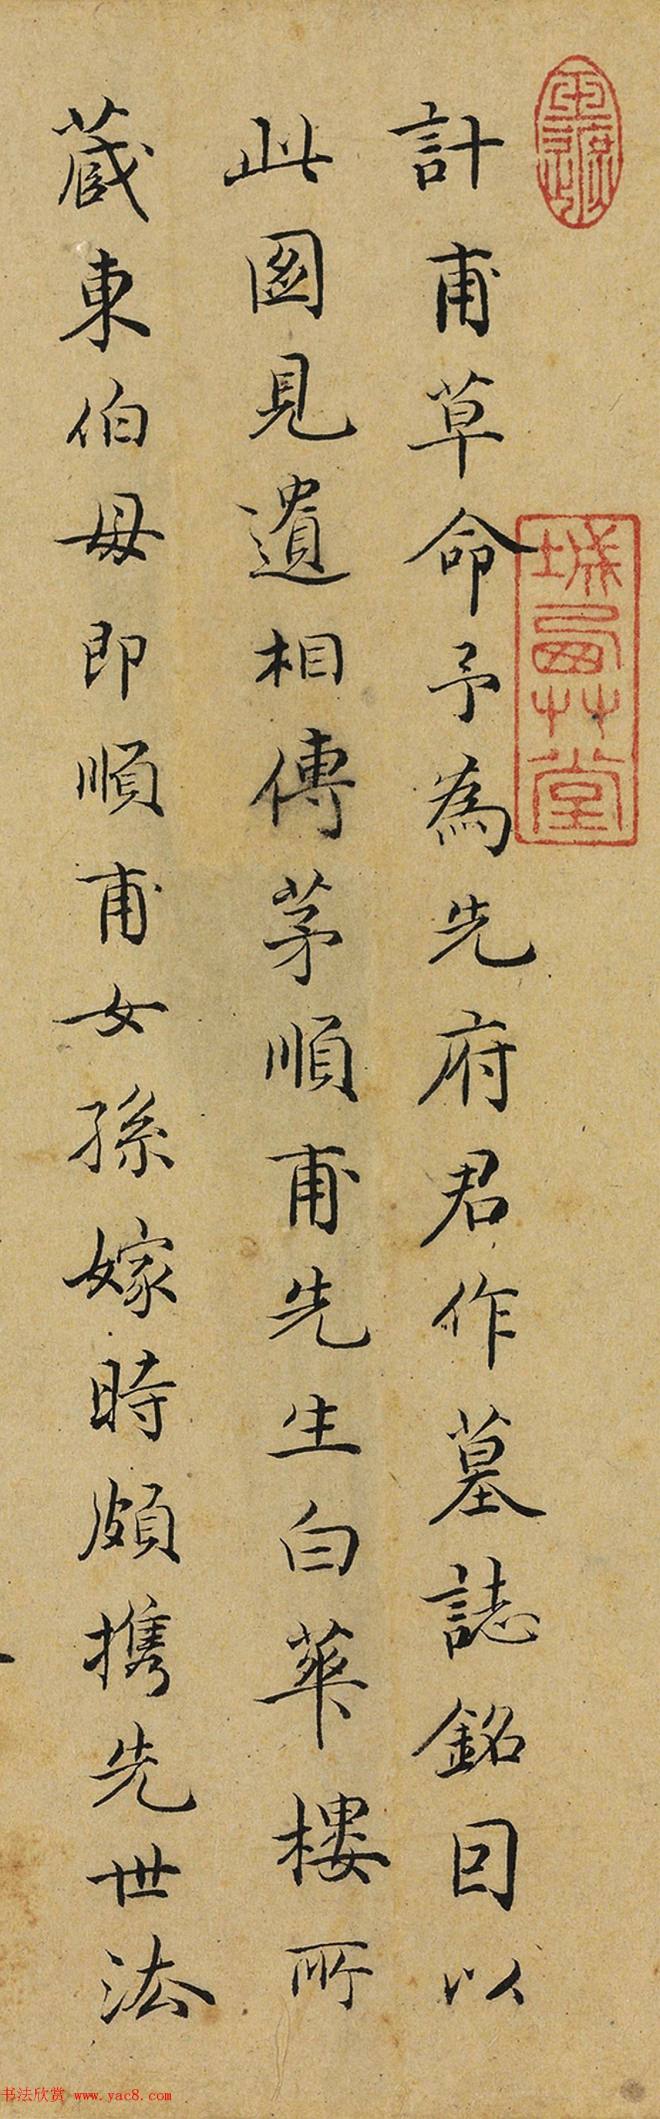 計甫草命予為先府君作墓誌銘因以
此圖見遺相傳茅順甫先生白華樓所
藏東伯母即順甫女孫嫁時頗攜先世法
草堂
书法欣赏 www.yac8.com